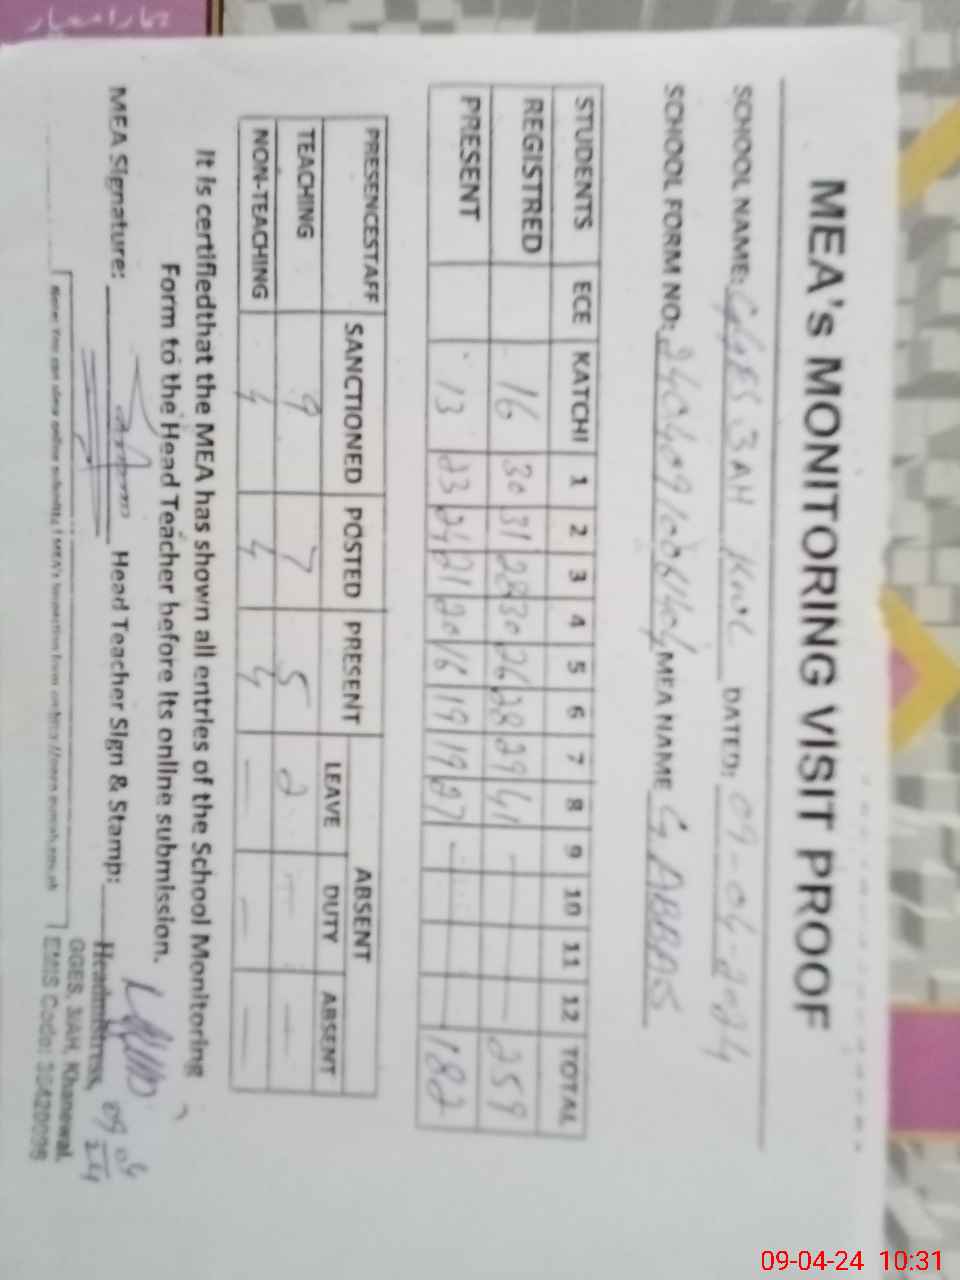 MEA's MONITORING VISIT PROOF
SCHOOL NAME: GGES 3AH KWL DATED: 09-04-2024
SCHOOL FORM NO: MEA NAME G. ABBAS
STUDENTS ECE KATCHI 1 2 3 4 5 6 7 8 9 10 11 12 TOTAL
REGISTRED 16 30 31 28 30 26 28 29 41 — 259
PRESENT 13 23 24 21 20 16 19 19 27 — 182
PRESENCESTAFF SANCTIONED POSTED PRESENT ABSENT
LEAVE DUTY ABSENT
TEACHING 9 7 5 2 — —
NON-TEACHING 4 4 4 — — —
It is certifiedthat the MEA has shown all entries of the School Monitoring
Form to the Head Teacher before its online submission.
MEA Signature: Head Teacher Sign & Stamp:
09 04 24
Headmistress,
GGES, 3/AH, Khanewal.
EMIS Code:
09-04-24 10:31